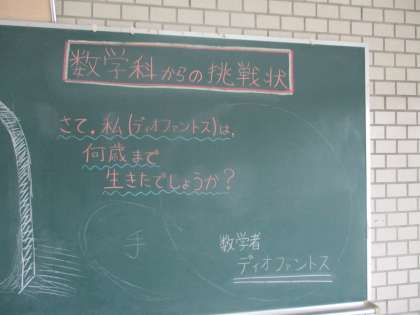 数学科からの挑戦状
さて、私(ディオファントス)は、
何歳まで
生きたでしょうか?
手
数学者
ディオファントス